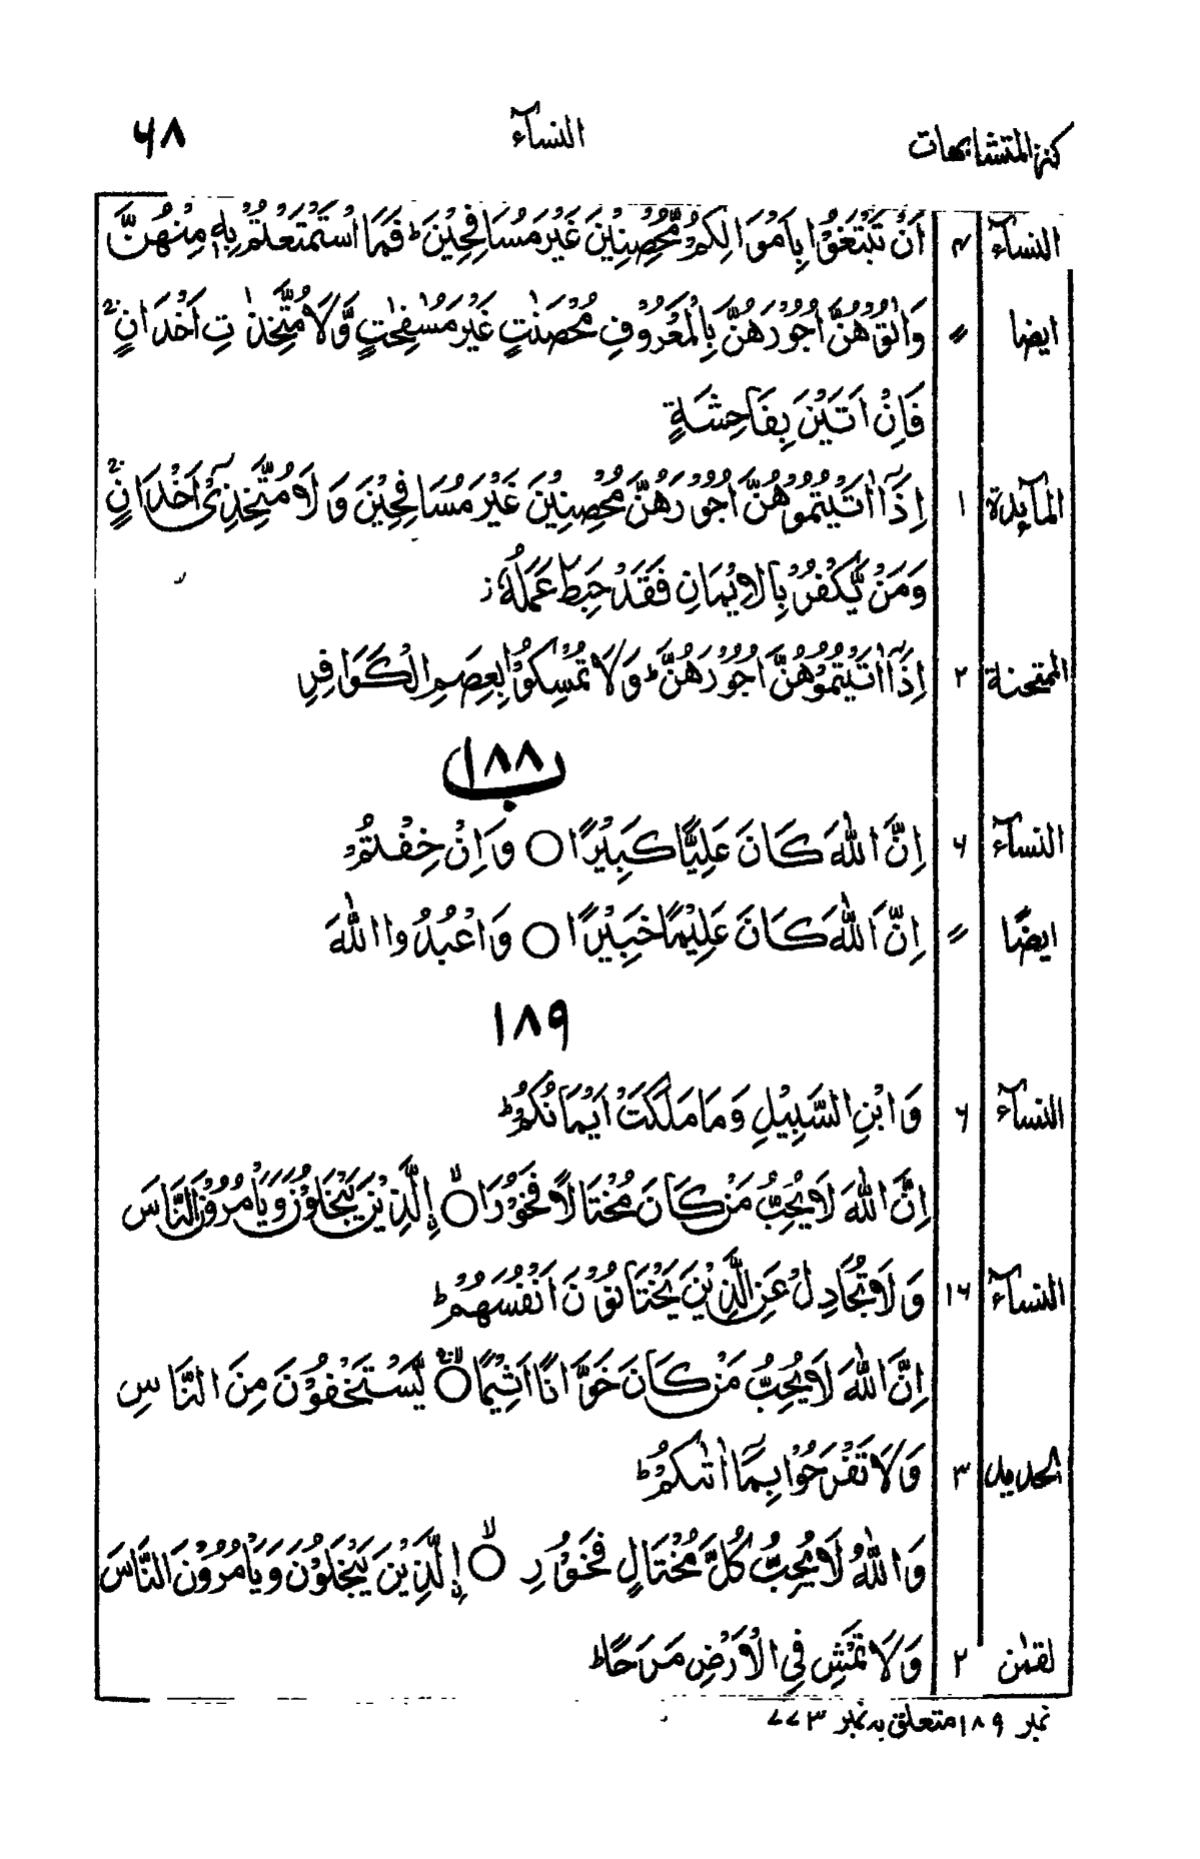 كنز المتشابهات النسآء ۶۸
النسآء ۴ اَنْ تَبْتَغُوْا بِاَمْوَالِكُمْ مُّحْصِنِيْنَ غَيْرَ مُسَافِحِيْنَ ؕ فَمَا اسْتَمْتَعْتُمْ بِهٖ مِنْهُنَّ
ايضا 〃 وَاٰتُوْهُنَّ اُجُوْرَهُنَّ بِالْمَعْرُوْفِ مُحْصَنٰتٍ غَيْرَ مُسٰفِحٰتٍ وَّلَا مُتَّخِذٰتِ اَخْدَانٍ ۚ
فَاِنْ اَتَيْنَ بِفَاحِشَةٍ
المآئدة ۱ اِذَاۤ اٰتَيْتُمُوْهُنَّ اُجُوْرَهُنَّ مُحْصِنِيْنَ غَيْرَ مُسَافِحِيْنَ وَلَا مُتَّخِذِىْۤ اَخْدَانٍ ؕ
وَمَنْ يَّكْفُرْ بِالْاِيْمَانِ فَقَدْ حَبِطَ عَمَلُهٗ ز
الممتحنة ۲ اِذَاۤ اٰتَيْتُمُوْهُنَّ اُجُوْرَهُنَّ ؕ وَلَا تُمْسِكُوْا بِعِصَمِ الْكَوَافِرِ
ب ۱۸۸
النسآء ۶ اِنَّ اللّٰهَ كَانَ عَلِيًّا كَبِيْرًا ○ وَاِنْ خِفْتُمْ
ايضًا 〃 اِنَّ اللّٰهَ كَانَ عَلِيْمًا خَبِيْرًا ○ وَاعْبُدُوا اللّٰهَ
۱۸۹
النسآء ۶ وَابْنِ السَّبِيْلِ وَمَا مَلَكَتْ اَيْمَانُكُمْ ؕ
اِنَّ اللّٰهَ لَا يُحِبُّ مَنْ كَانَ مُخْتَالًا فَخُوْرَا ○ ۙ اِلَّذِيْنَ يَبْخَلُوْنَ وَيَاْمُرُوْنَ النَّاسَ
النسآء ۱۶ وَلَا تُجَادِلْ عَنِ الَّذِيْنَ يَخْتَانُوْنَ اَنْفُسَهُمْ ؕ
اِنَّ اللّٰهَ لَا يُحِبُّ مَنْ كَانَ خَوَّانًا اَثِيْمًا ○ ۚۙ يَّسْتَخْفُوْنَ مِنَ النَّاسِ
الحديد ۳ وَلَا تَفْرَحُوْا بِمَاۤ اٰتٰىكُمْ ؕ
وَاللّٰهُ لَا يُحِبُّ كُلَّ مُخْتَالٍ فَخُوْرِ ○ ۙ اِلَّذِيْنَ يَبْخَلُوْنَ وَيَاْمُرُوْنَ النَّاسَ
لقمٰن ۲ وَلَا تَمْشِ فِى الْاَرْضِ مَرَحًا ؕ
نمبر ۱۸۹ متعلق به نمبر ۷۷۳